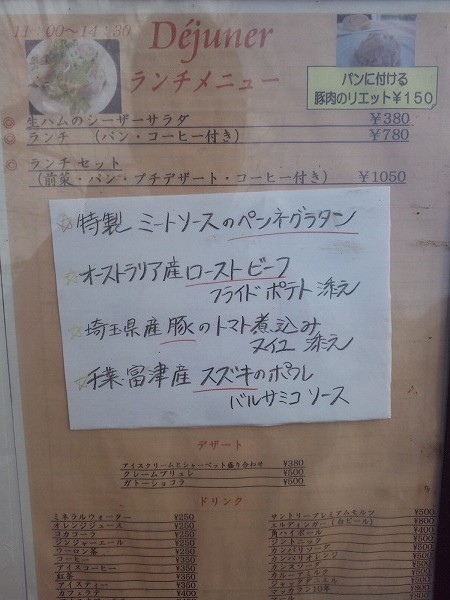 11:00~14:30
Déjuner
ランチメニュー
パンに付ける
豚肉のリエット¥150
◎ 生ハムのシーザーサラダ ¥380
◎ ランチ (パン・コーヒー付き) ¥780
◎ ランチセット
(前菜・パン・プチデザート・コーヒー付き) ¥1050
☆特製 ミートソースのペンネグラタン
☆オーストラリア産 ローストビーフ
フライドポテト添え
☆埼玉県産 豚のトマト煮込み
ヌイユ 添え
☆千葉・富津産 スズキのポワレ
バルサミコソース
デザート
アイスクリームとシャーベット盛り合わせ ¥380
クレームブリュレ ¥500
ガトーショコラ ¥500
ドリンク
ミネラルウォーター ¥250
オレンジジュース ¥250
コカコーラ ¥250
ジンジャーエール ¥250
ウーロン茶 ¥250
コーヒー ¥350
アイスコーヒー ¥350
紅茶 ¥350
アイスティー ¥350
カフェラテ ¥400
サントリープレミアムモルツ ¥500
エルディンガー(白ビール) ¥800
角ハイボール ¥400
ジントニック
カンパリソーダ
カンパリオレンジ
カシスソーダ
カルーアミルク
ジャックダニエル
マッカラン10年